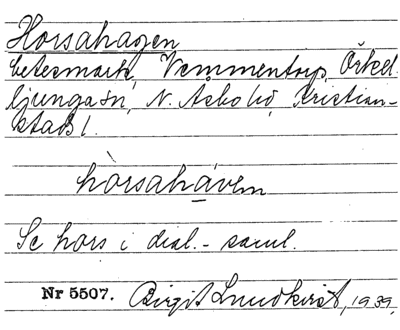 Horsahagen
betesmark, Vemmentorp, Örkel-
ljunga sn, N. Åsbo hd, Kristian-
stads l.
hòrsahávem
Se hors i dial.-saml.
Nr 5507. Birgit Lundkvist, 1939.